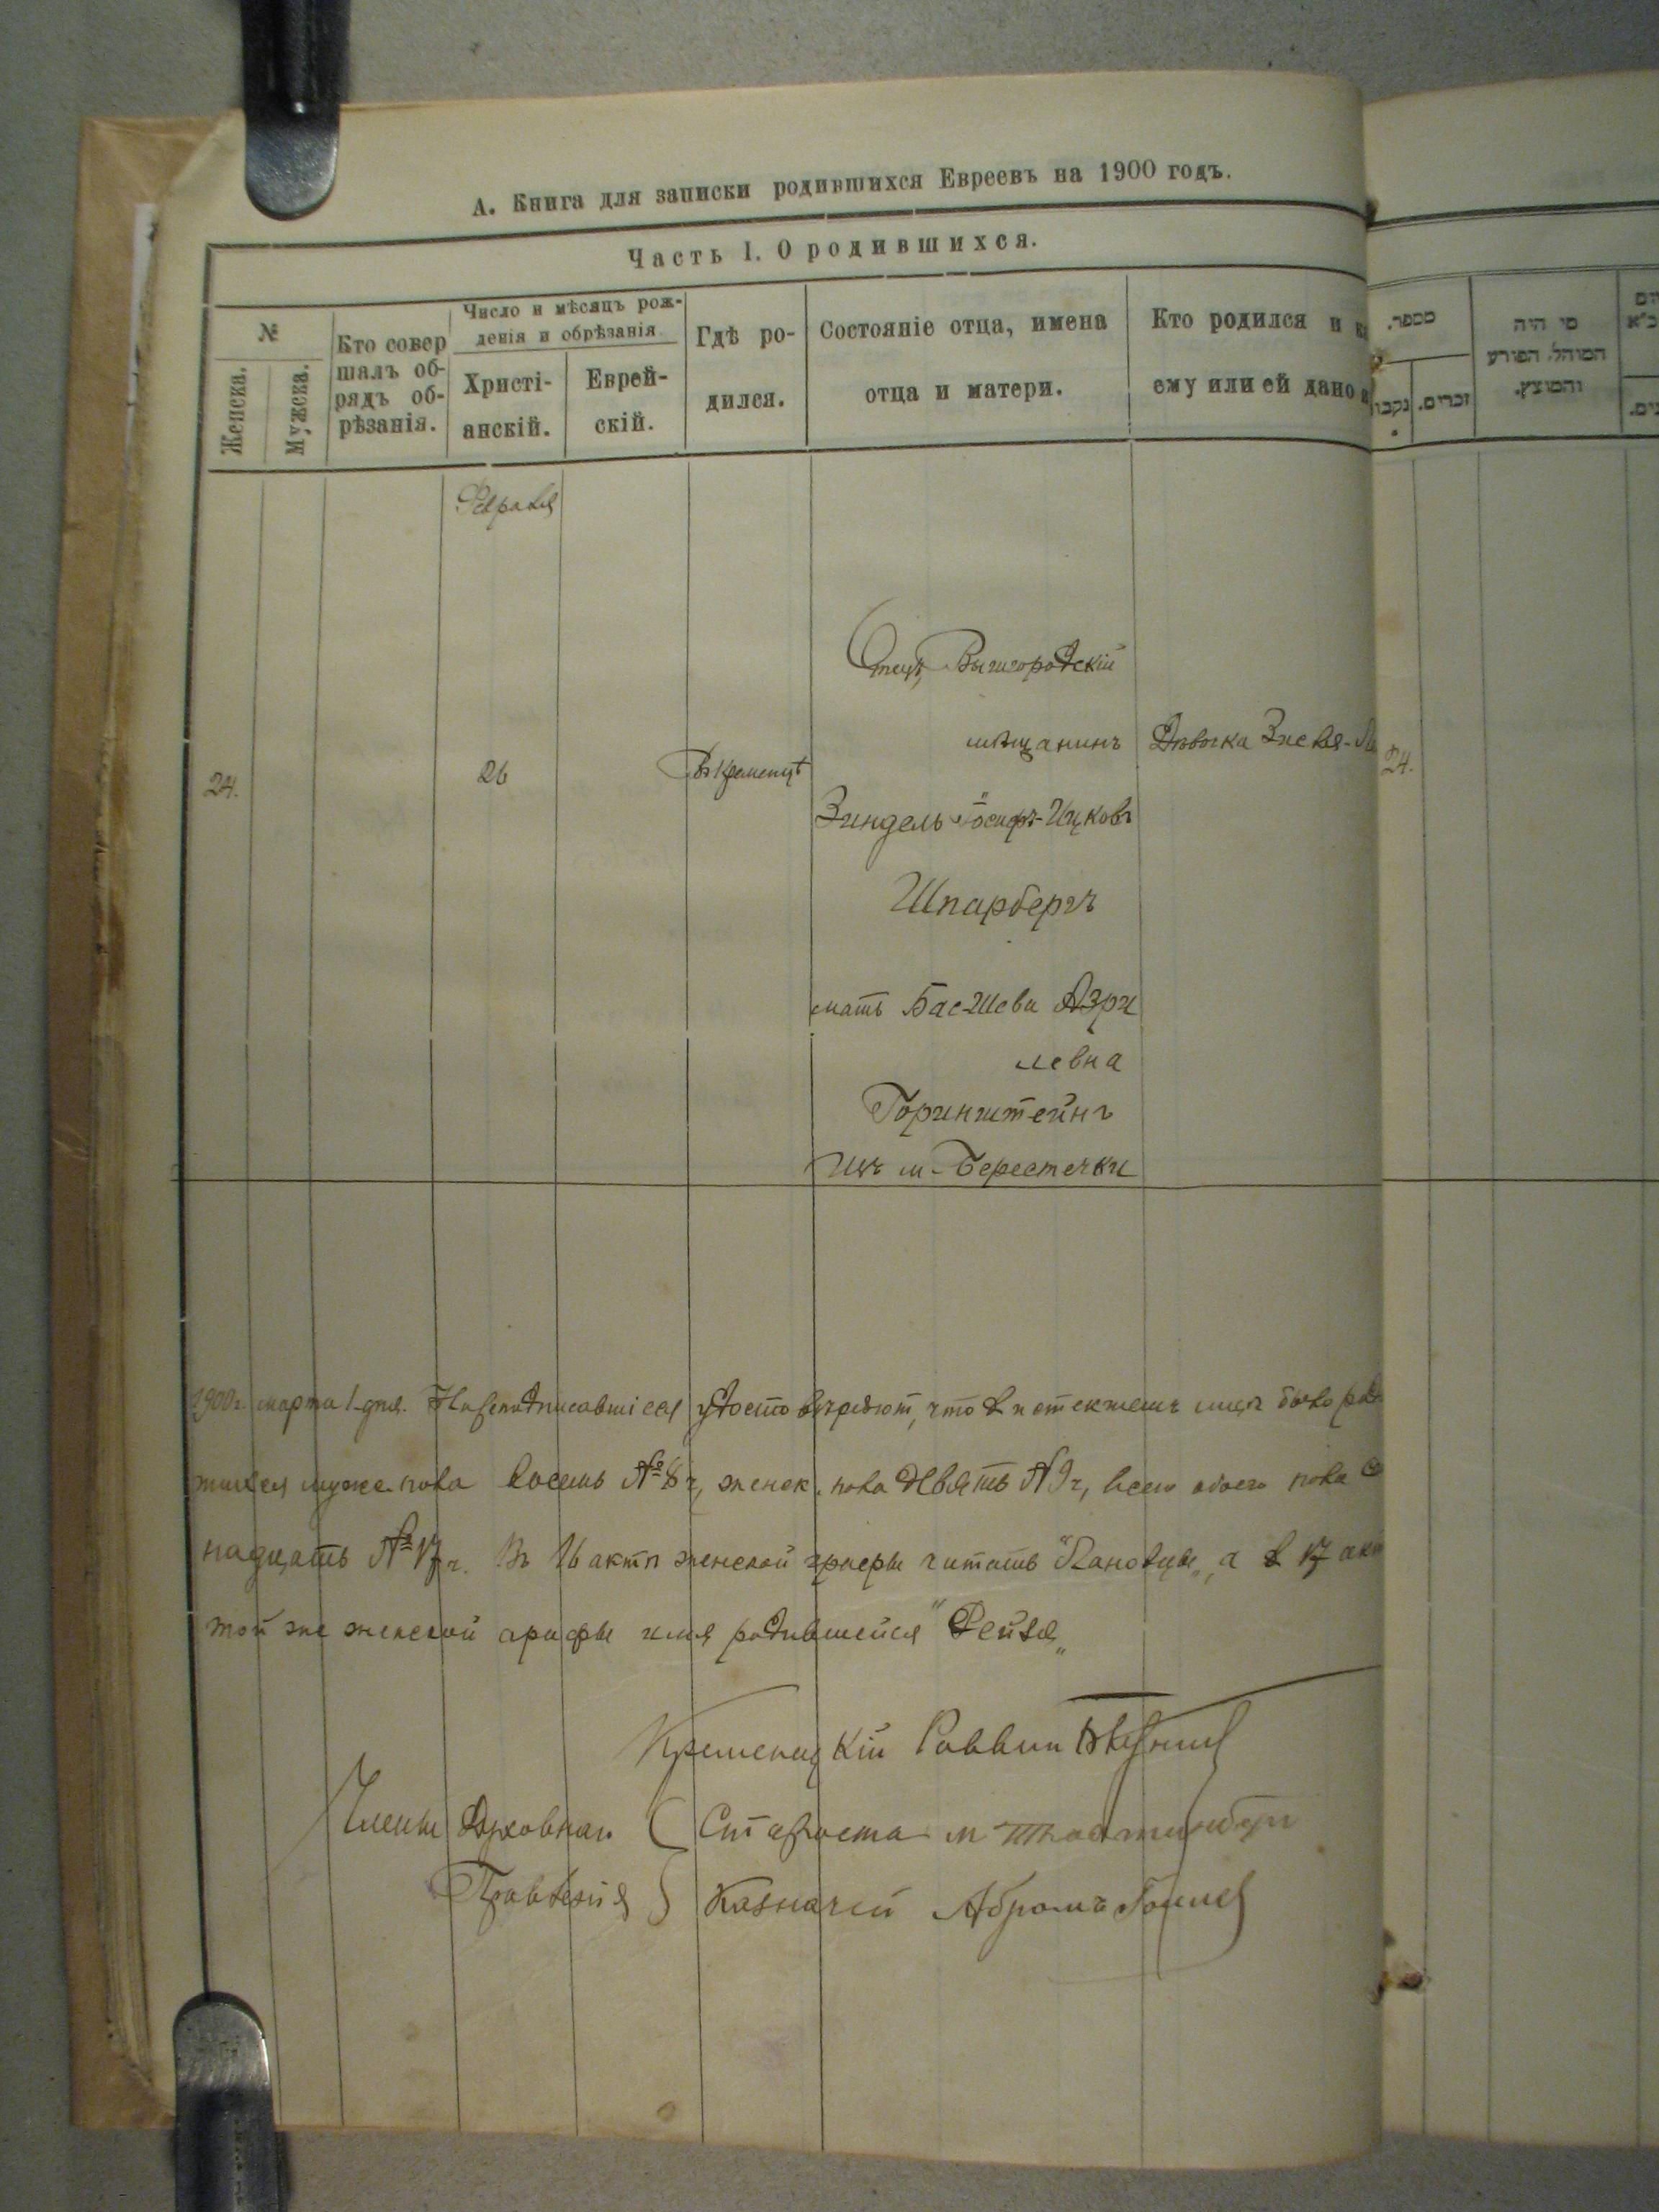 А. Книга для записки родившихся Евреевъ на 1900 годъ.
Часть I. О родившихся.
№
Женска.
Мужска.
Кто совер
шалъ об-
рядъ об-
рѣзанія.
Число и мѣсяцъ рож-
денія и обрѣзанія
Христі-
анскій.
Еврей-
скій.
Гдѣ ро-
дился.
Состояніе отца, имена
отца и матери.
Кто родился и
ему или ей дано
מספר.
נקבו
זכרים.
מי היה
המוהל, הפורע
והמוצץ.
Февраля
24.
26
Въ Кременцѣ
Отецъ, Вышгородскій
мѣщанинъ
Зиндель Іосифъ-Ицковъ
Шпарбергъ
мать Бас-Шева Азри
левна
Горинштейнъ
изъ м. Берестечки
Дѣвочка Знесля-
24.
1900 г. марта 1 дня. удостовѣряют, что в истекшемъ было
муже. пола восемь № 8 ч, женск. пола девять № 9 ч, всего обоего пола
надцать № 17 ч. Въ 16 актѣ женской графы читать "Лановцы„, а в 17
той же женской графы имя родившейся "Рейзя„
Кременецкій Раввин
Члены Духовнаго Староста М
Правленія Казначей Абрамъ